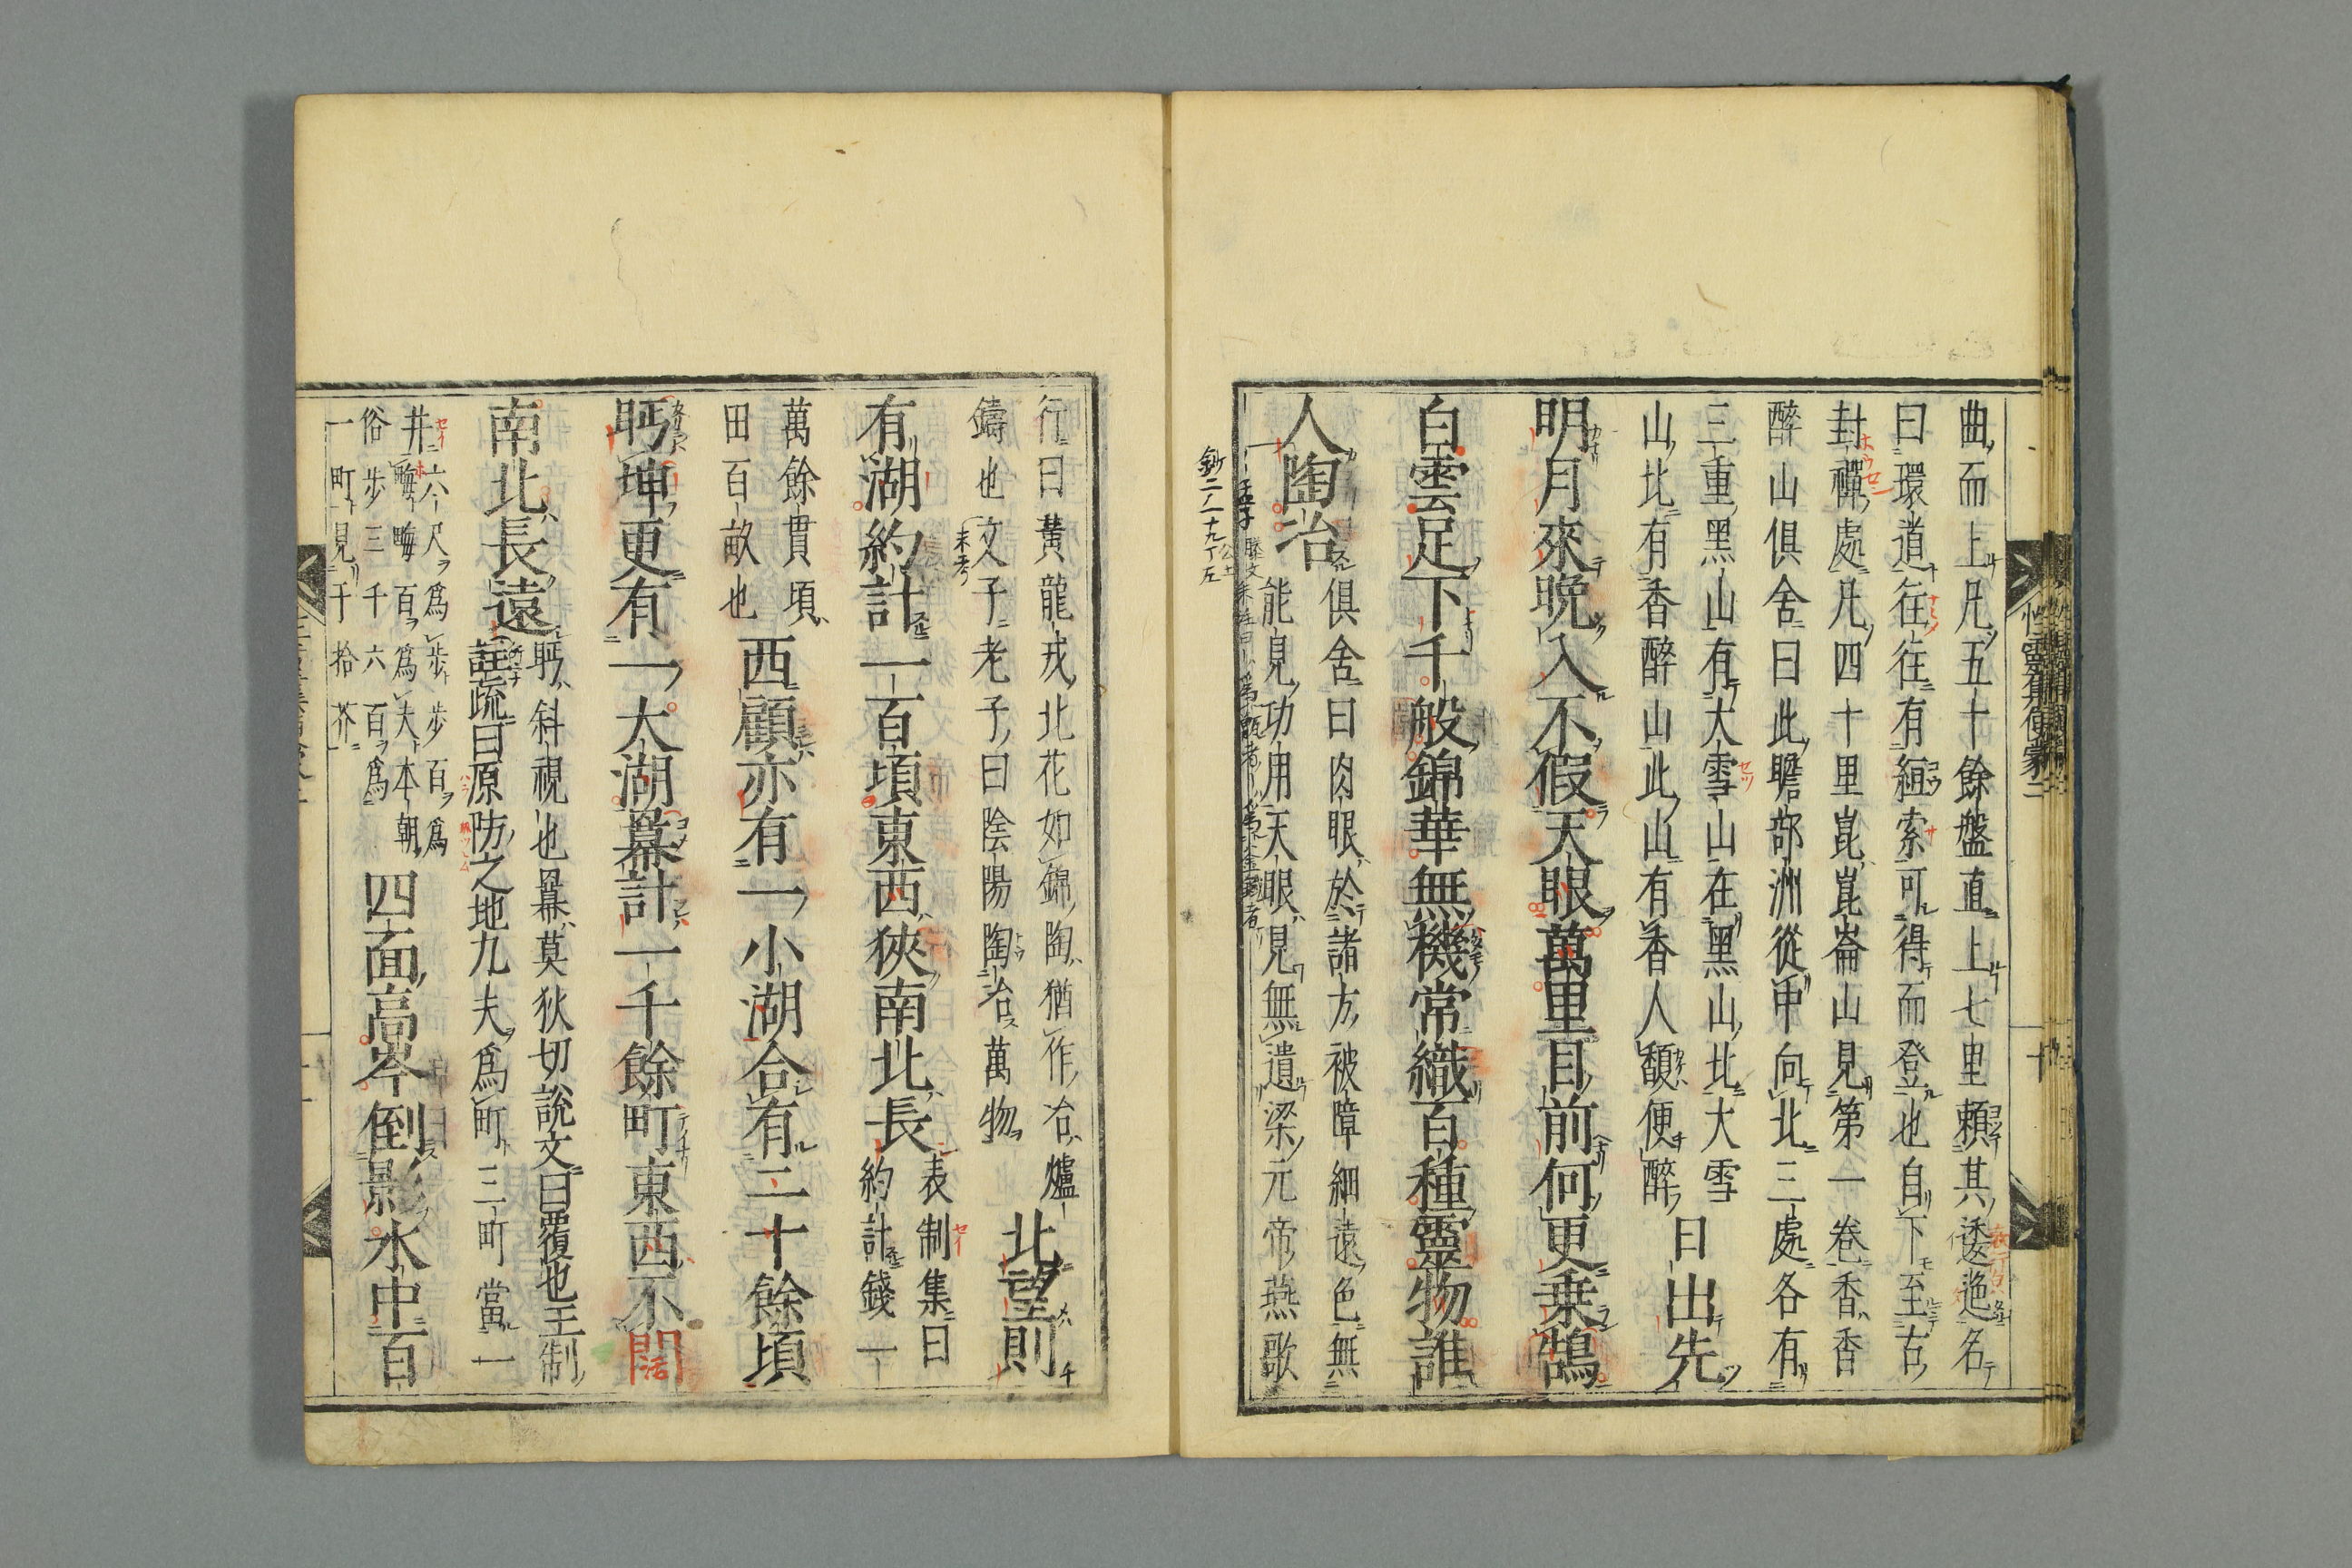 曲而上凡五十餘盤直上七里賴其逶迤名
曰環道往往有緪索可得而登也自下至古
封禪處凡四十里崑崑崙山見第一卷香香
醉山俱舍曰此贍部洲從中向北三處各有
三重黑山有大雪山在黑山北大雪
山北有香醉山此山有香人馥便醉
日出先
明月來晚入不假天眼萬里目前何更乗鵠
白雲足下千般錦華無機常織百種靈物誰
人陶冶
俱舍曰肉眼於諸方被障細遠色無
能見功用天眼見無遺梁元帝燕歌
鈔二ノ十九丁左
行曰黄龍戎北花如錦陶猶作冶爐
鑄也文子老子曰陰陽陶冶萬物
北望則
有湖約計一百頃東西狹南北長
表制集曰
約計錢一
萬餘貫頃
田百畝也
西顧亦有一小湖合有二十餘頃
眄坤更有一大湖羃計一千餘町東西不闊
南北長遠
眄斜視也羃莫狄切説文曰覆也王制
註疏曰原防之地九夫爲町三町當一
井六尺爲歩歩百爲
畮畮百爲夫本朝
俗歩三千六百爲
一町見于拾芥
四面高岑倒影水中百